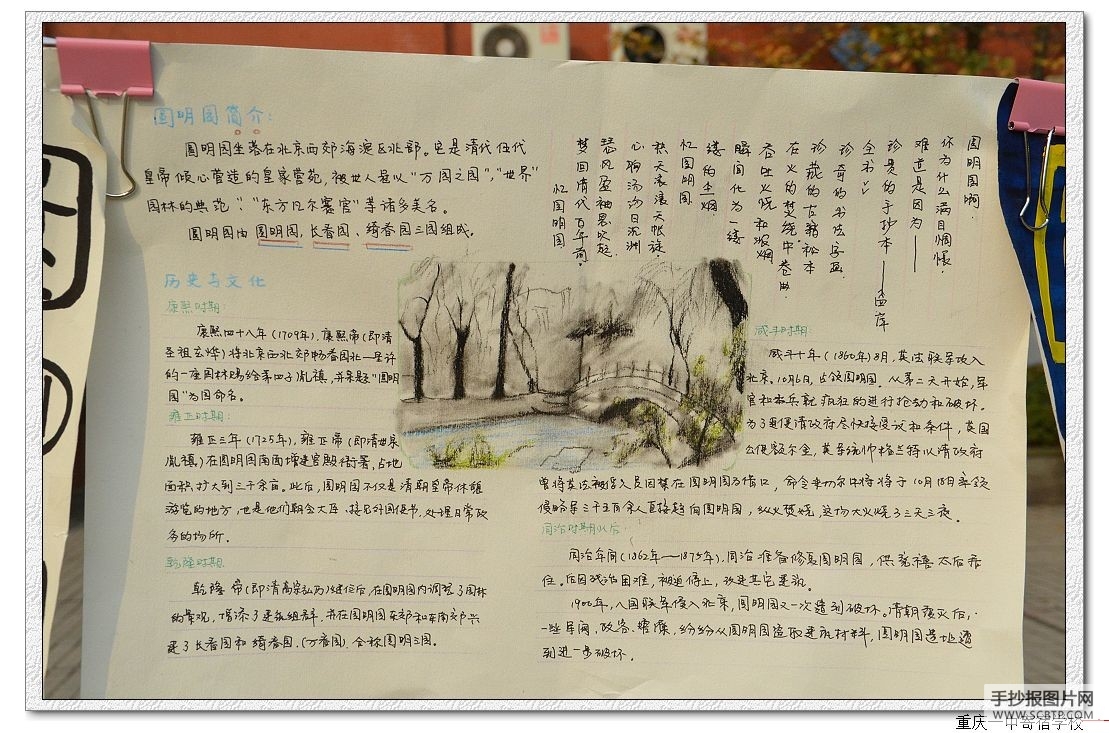 圆明园简介:
圆明园坐落在北京西郊海淀区北部。它是清代五代
皇帝倾心营造的皇家宫苑,被世人冠以"万园之园","世界"
园林的典范""东方凡尔赛宫"等诸多美名。
圆明园由圆明园,长春园、绮春园三园组成。
圆明园啊,
你为什么满目惆怅.
难道是因为——
珍贵的手抄本——
全书
珍奇的书法字画
珍藏的古籍秘本
在火的焚烧中卷曲.
吞吐火舌和浓烟
瞬间化为一缕
缕的尘烟
忆圆明园
秋天衰
心胸汤汤日
梦回清代百年前.
忆圆明园
历史与文化
康熙时期:
康熙四十八年(1709年),康熙帝(即清
圣祖玄烨)将北京西北郊畅春园北一里许
的一座园林赐给第四子胤禛,并亲题"圆明
园"为园命名。
雍正时期:
雍正三年(1725年),雍正帝(即清世宗
胤禛)在圆明园南面增建宫殿衙署,占地
面积扩大到三千余亩。此后,圆明园不仅是清朝皇帝休憩
游览的地方,也是他们朝会大臣、接见外国使节,处理日常政
务的场所.
乾隆时期
乾隆帝(即清高宗弘历)继位后,在圆明园内调整了园林
的景观,增添了建筑组群,并在圆明园东邻和东南邻兴
建了长春园和绮春园.(万春园).合称圆明三园.
咸丰时期:
咸丰十年(1860年)8月,英法联军攻入
北京,10月6日,占领圆明园.从第二天开始,军
官和士兵就疯狂的进行抢劫和破坏.
为了迫使清政府尽快接受议和条件,英国
公使额尔金,英军统帅格兰特以清政府
曾将英法被俘人员囚禁在圆明园为借口,命令米切尔中将于10月18日率领
侵略军三千五百余人直接趋向圆明园,纵火焚烧,这场大火烧了三天三夜。
同治时期以后:
同治年间(1862年—1875年),同治准备修复圆明园,供慈禧太后居
住。后因财治困难,被迫停止,改建其它建筑.
1900年,八国联军侵入北京,圆明园又一次遭到破坏。清朝覆灭后,
一些军阀,政客、纷纷从圆明园盗取建筑材料,圆明园遗址遭
到进一步破坏.
手抄报图片网
WWW.SCBTP.COM
重庆一中寄宿学校